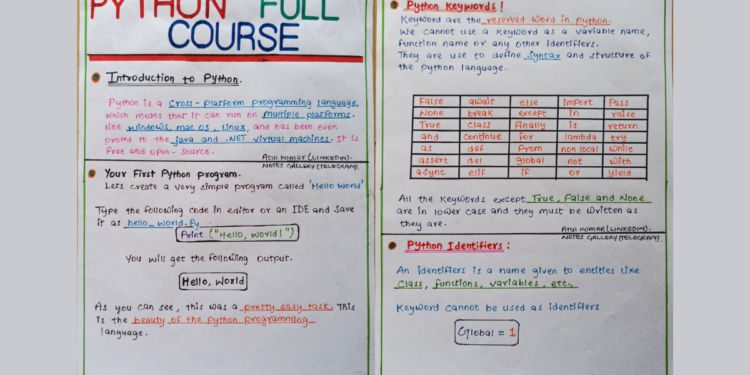 PYTHON FULL
COURSE
Introduction to Python.
Python is a Cross-platform programming language,
which means that it can run on multiple platforms.
like windows, mac os, linux, and has been even
proted to the java and .NET virtual machines. It is
free and open-source.
Atul Kumar (LINKEDIN).
NOTES GALLERY (TELEGRAM).
Your First Python program.
Lets create a very simple program called 'Hello World'
Type the following code in editor or an IDE and save
it as hello_world.Py
Print ("Hello, world!")
You will get the following output.
Hello, world
As you can see, this was a pretty easy task. This
is the beauty of the python programming
language.
Python Keywords!
Keyword are the reserved word in python.
We cannot use a keyword as a variable name,
function name or any other identifiers.
They are use to define Syntax and structure of
the python language.
False await else import Pass
None break except in raise
True class finally is return
and continue for lambda try
as def from non local while
assert del global not with
async elif if or yield
All the keywords except True, False and None
are in lower case and they must be written as
they are.
Atul Kumar (LINKEDIN).
NOTES GALLERY (TELEGRAM).
Python Identifiers:
An identifiers is a name given to entities like
Class, functions, variables, etc.,
Keyword cannot be used as identifiers
Global = 1